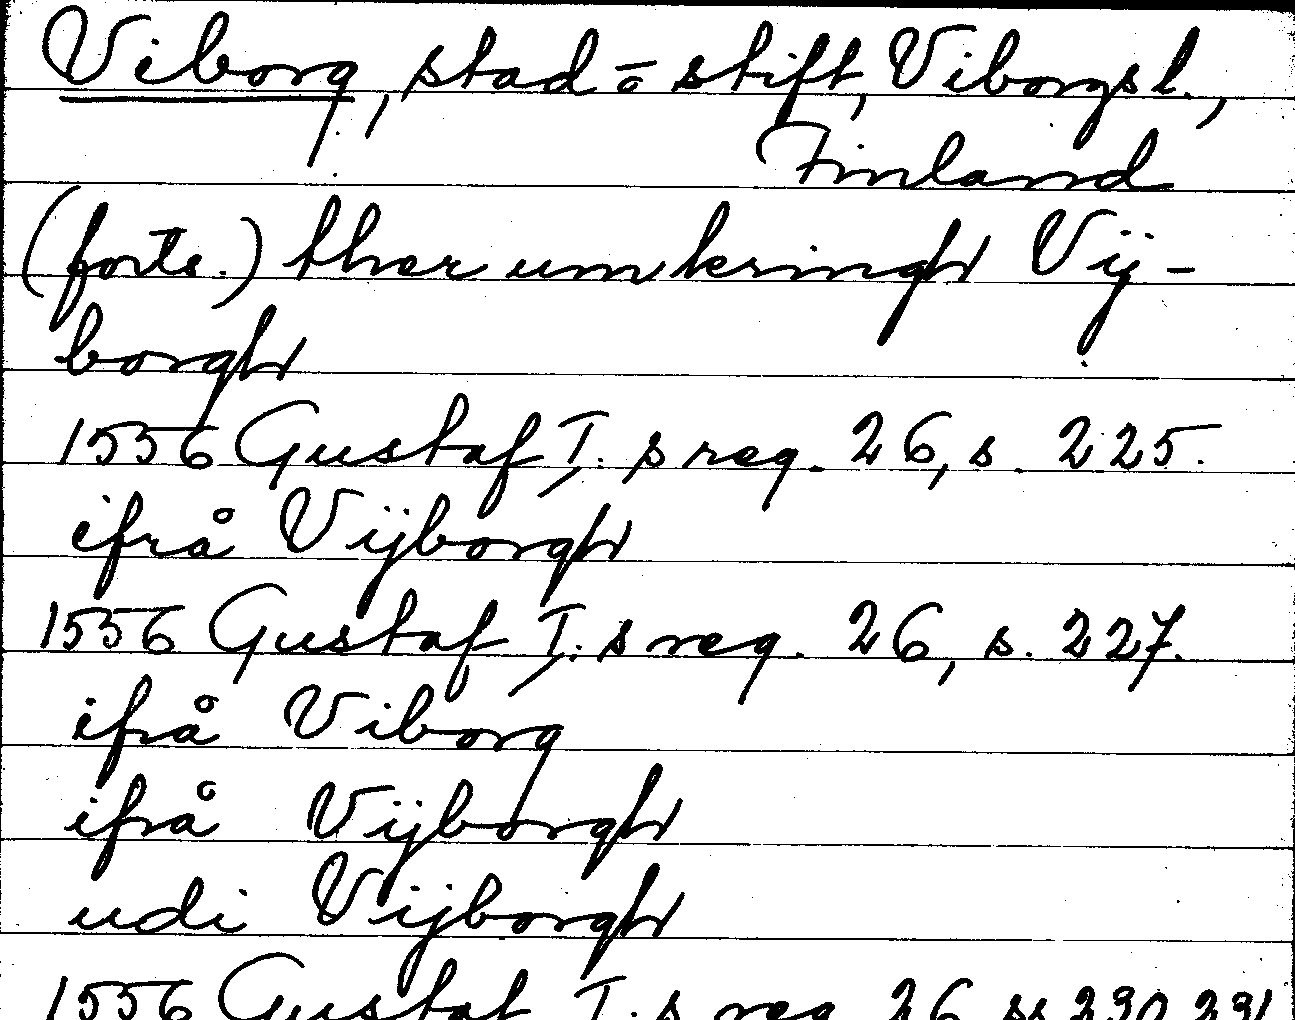 Viborg, stad o stift, Viborgs l.,
Finland
(forts.) ther umkringh Vij-
borgh
1556 Gustaf I:s reg. 26, s. 225.
ifrå Vijborgh
1556 Gustaf I:s reg. 26, s. 227.
ifrå Viborg
ifrå Vijborgh
udi Vijborgh
1556 Gustaf I:s reg. 26 ss 230, 231